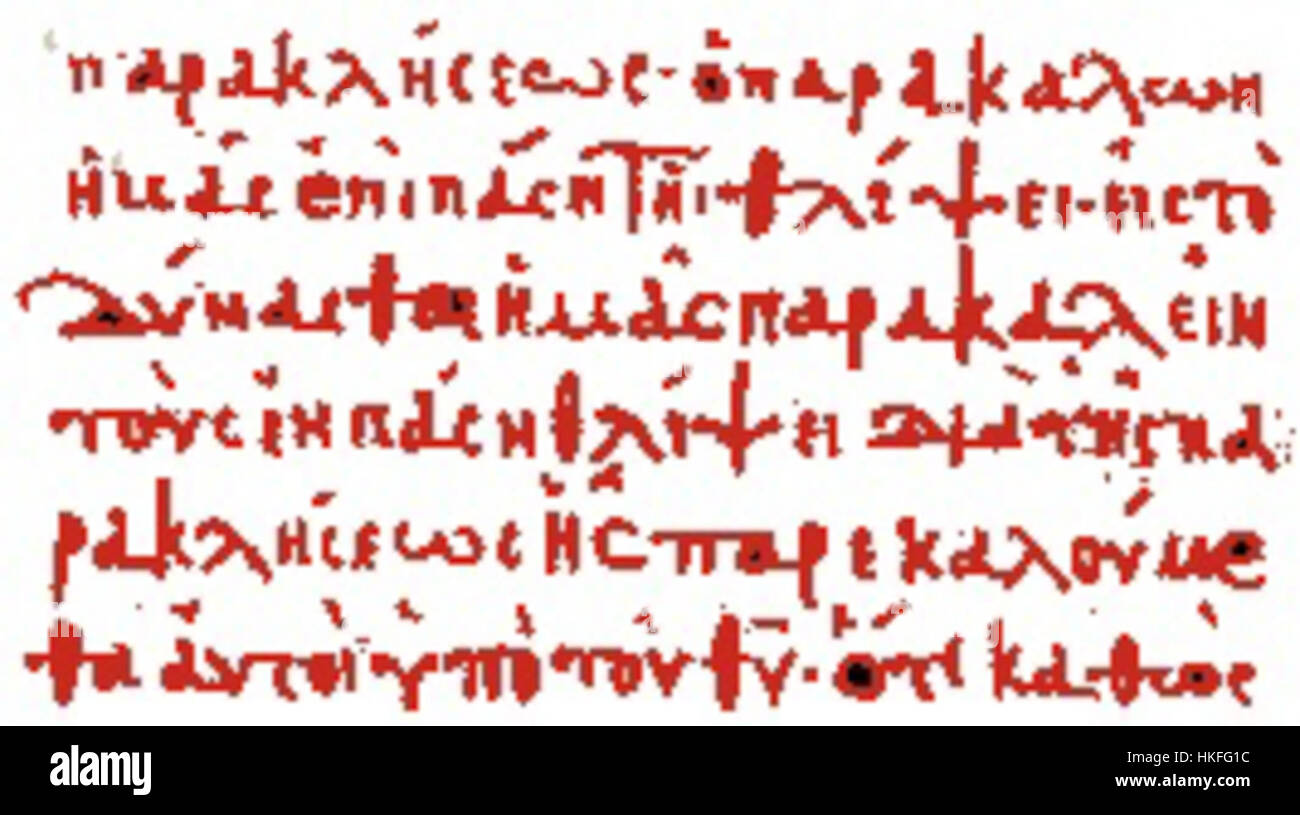 παρακλήσεως· ὁ παρακαλῶν
ἡμᾶς ἐπὶ πάσῃ τῇ θλίψει· εἰς τὸ
δύνασθαι ἡμᾶς παρακαλεῖν
τοὺς ἐν πάσῃ θλίψει διὰ τῆς πα
ρακλήσεως ἧς παρεκαλούμε
θα αὐτοὶ ὑπὸ τοῦ θυ· ὅτι καθὼς
alamy
Image ID: HKFG1C
www.alamy.com